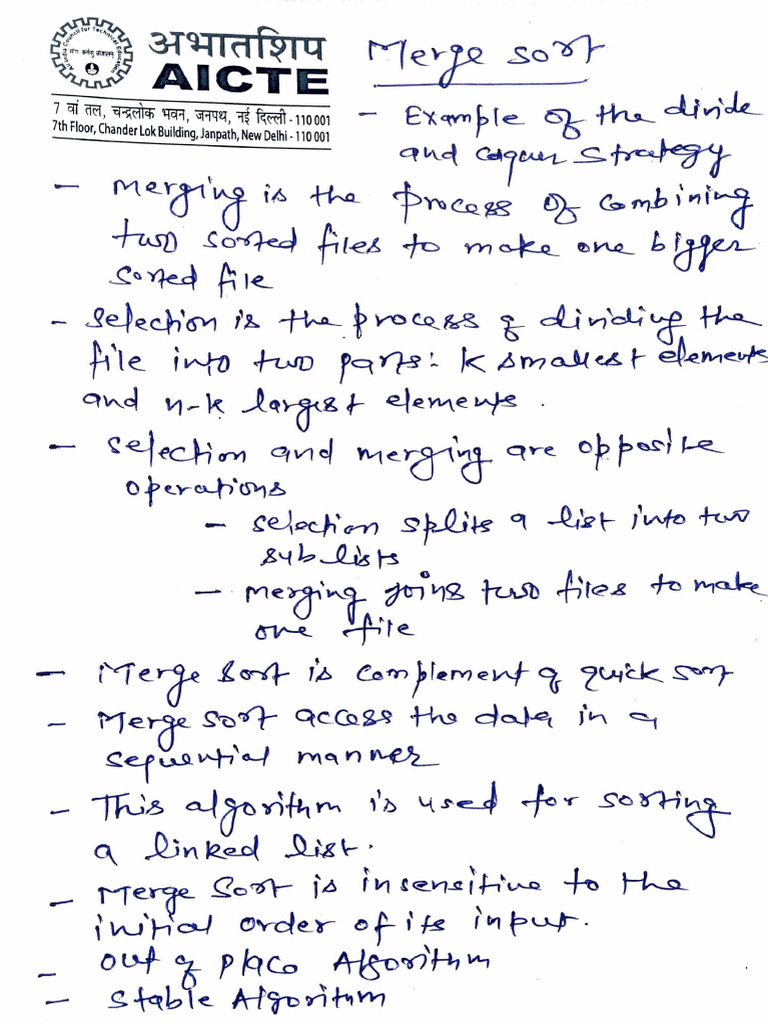 अभातशिप
AICTE
7 वां तल, चन्द्रलोक भवन, जनपथ, नई दिल्ली - 110 001
7th Floor, Chander Lok Building, Janpath, New Delhi - 110 001
Merge sort
- Example of the divide
and coquer strategy
- merging is the process of combining
two sorted files to make one bigger
sorted file
- selection is the process of dividing the
file into two parts: k smallest elements
and n-k largest elements.
- selection and merging are opposite
operations
- selection splits a list into two
sub lists
- merging joins two files to make
one file
- Merge Sort is complement of quick sort
- Merge sort access the data in a
sequential manner
- This algorithm is used for sorting
a linked list.
- Merge Sort is insensitive to the
initial order of its input.
- out of place Algorithm
- Stable Algorithm